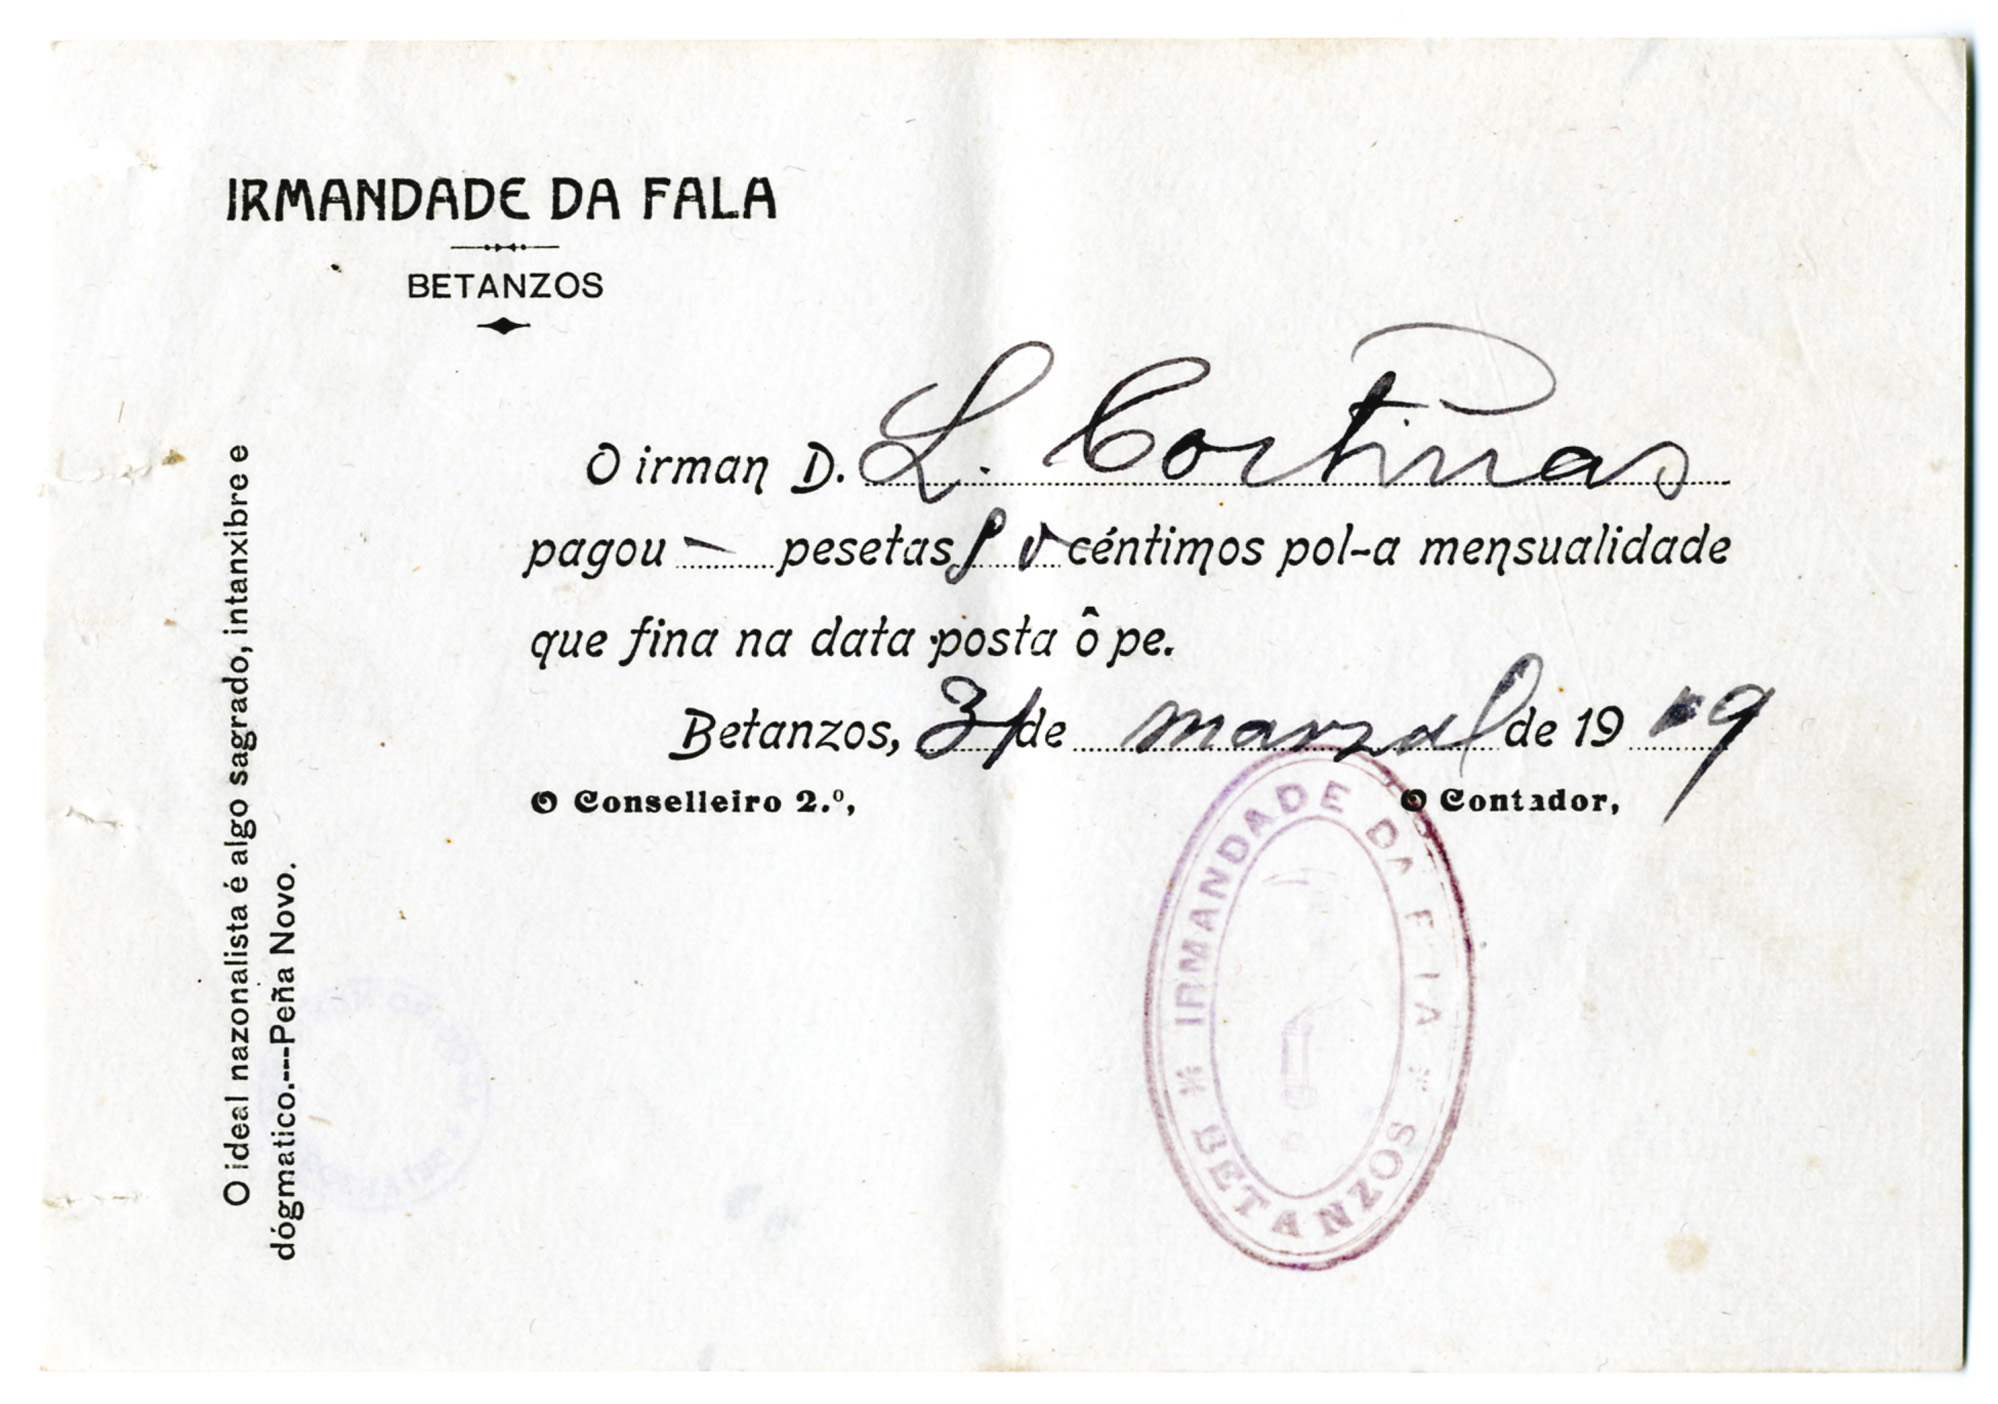 IRMANDADE DA FALA
BETANZOS
O irman D. L. Cortiñas
pagou — pesetas céntimos pol-a mensualidade
que fina na data posta ô pe.
Betanzos, 31 de marzal de 19 19
O Conselleiro 2.º, O Contador,
O ideal nazonalista é algo sagrado, intanxibre e
dógmatico.---Peña Novo.
IRMANDADE DA FALA
* BETANZOS *